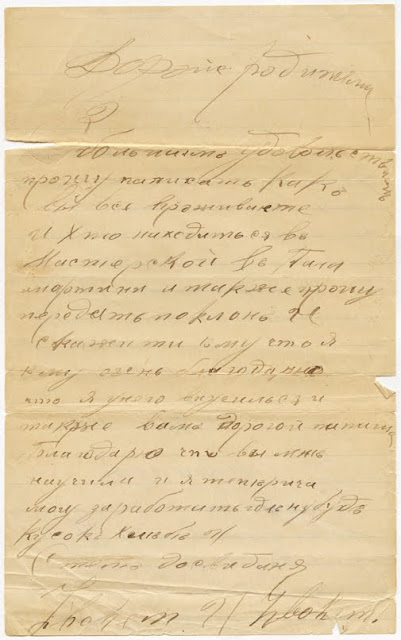 Дорогие родители
большимъ удовольствиемъ
прошу написать Какъ
вы все проживаете
И Хто находиться въ
Мастерской въ
и также прошу
передать поклонъ И
скажити ему что я
ему очень благодарно
что я у него и
также вамъ Дорогой папиша
Благодарю что вы мнь
научили и я теперича
могу заработить гденибудь
Кусокъ Хльбъ И
Стемъ досвиданя